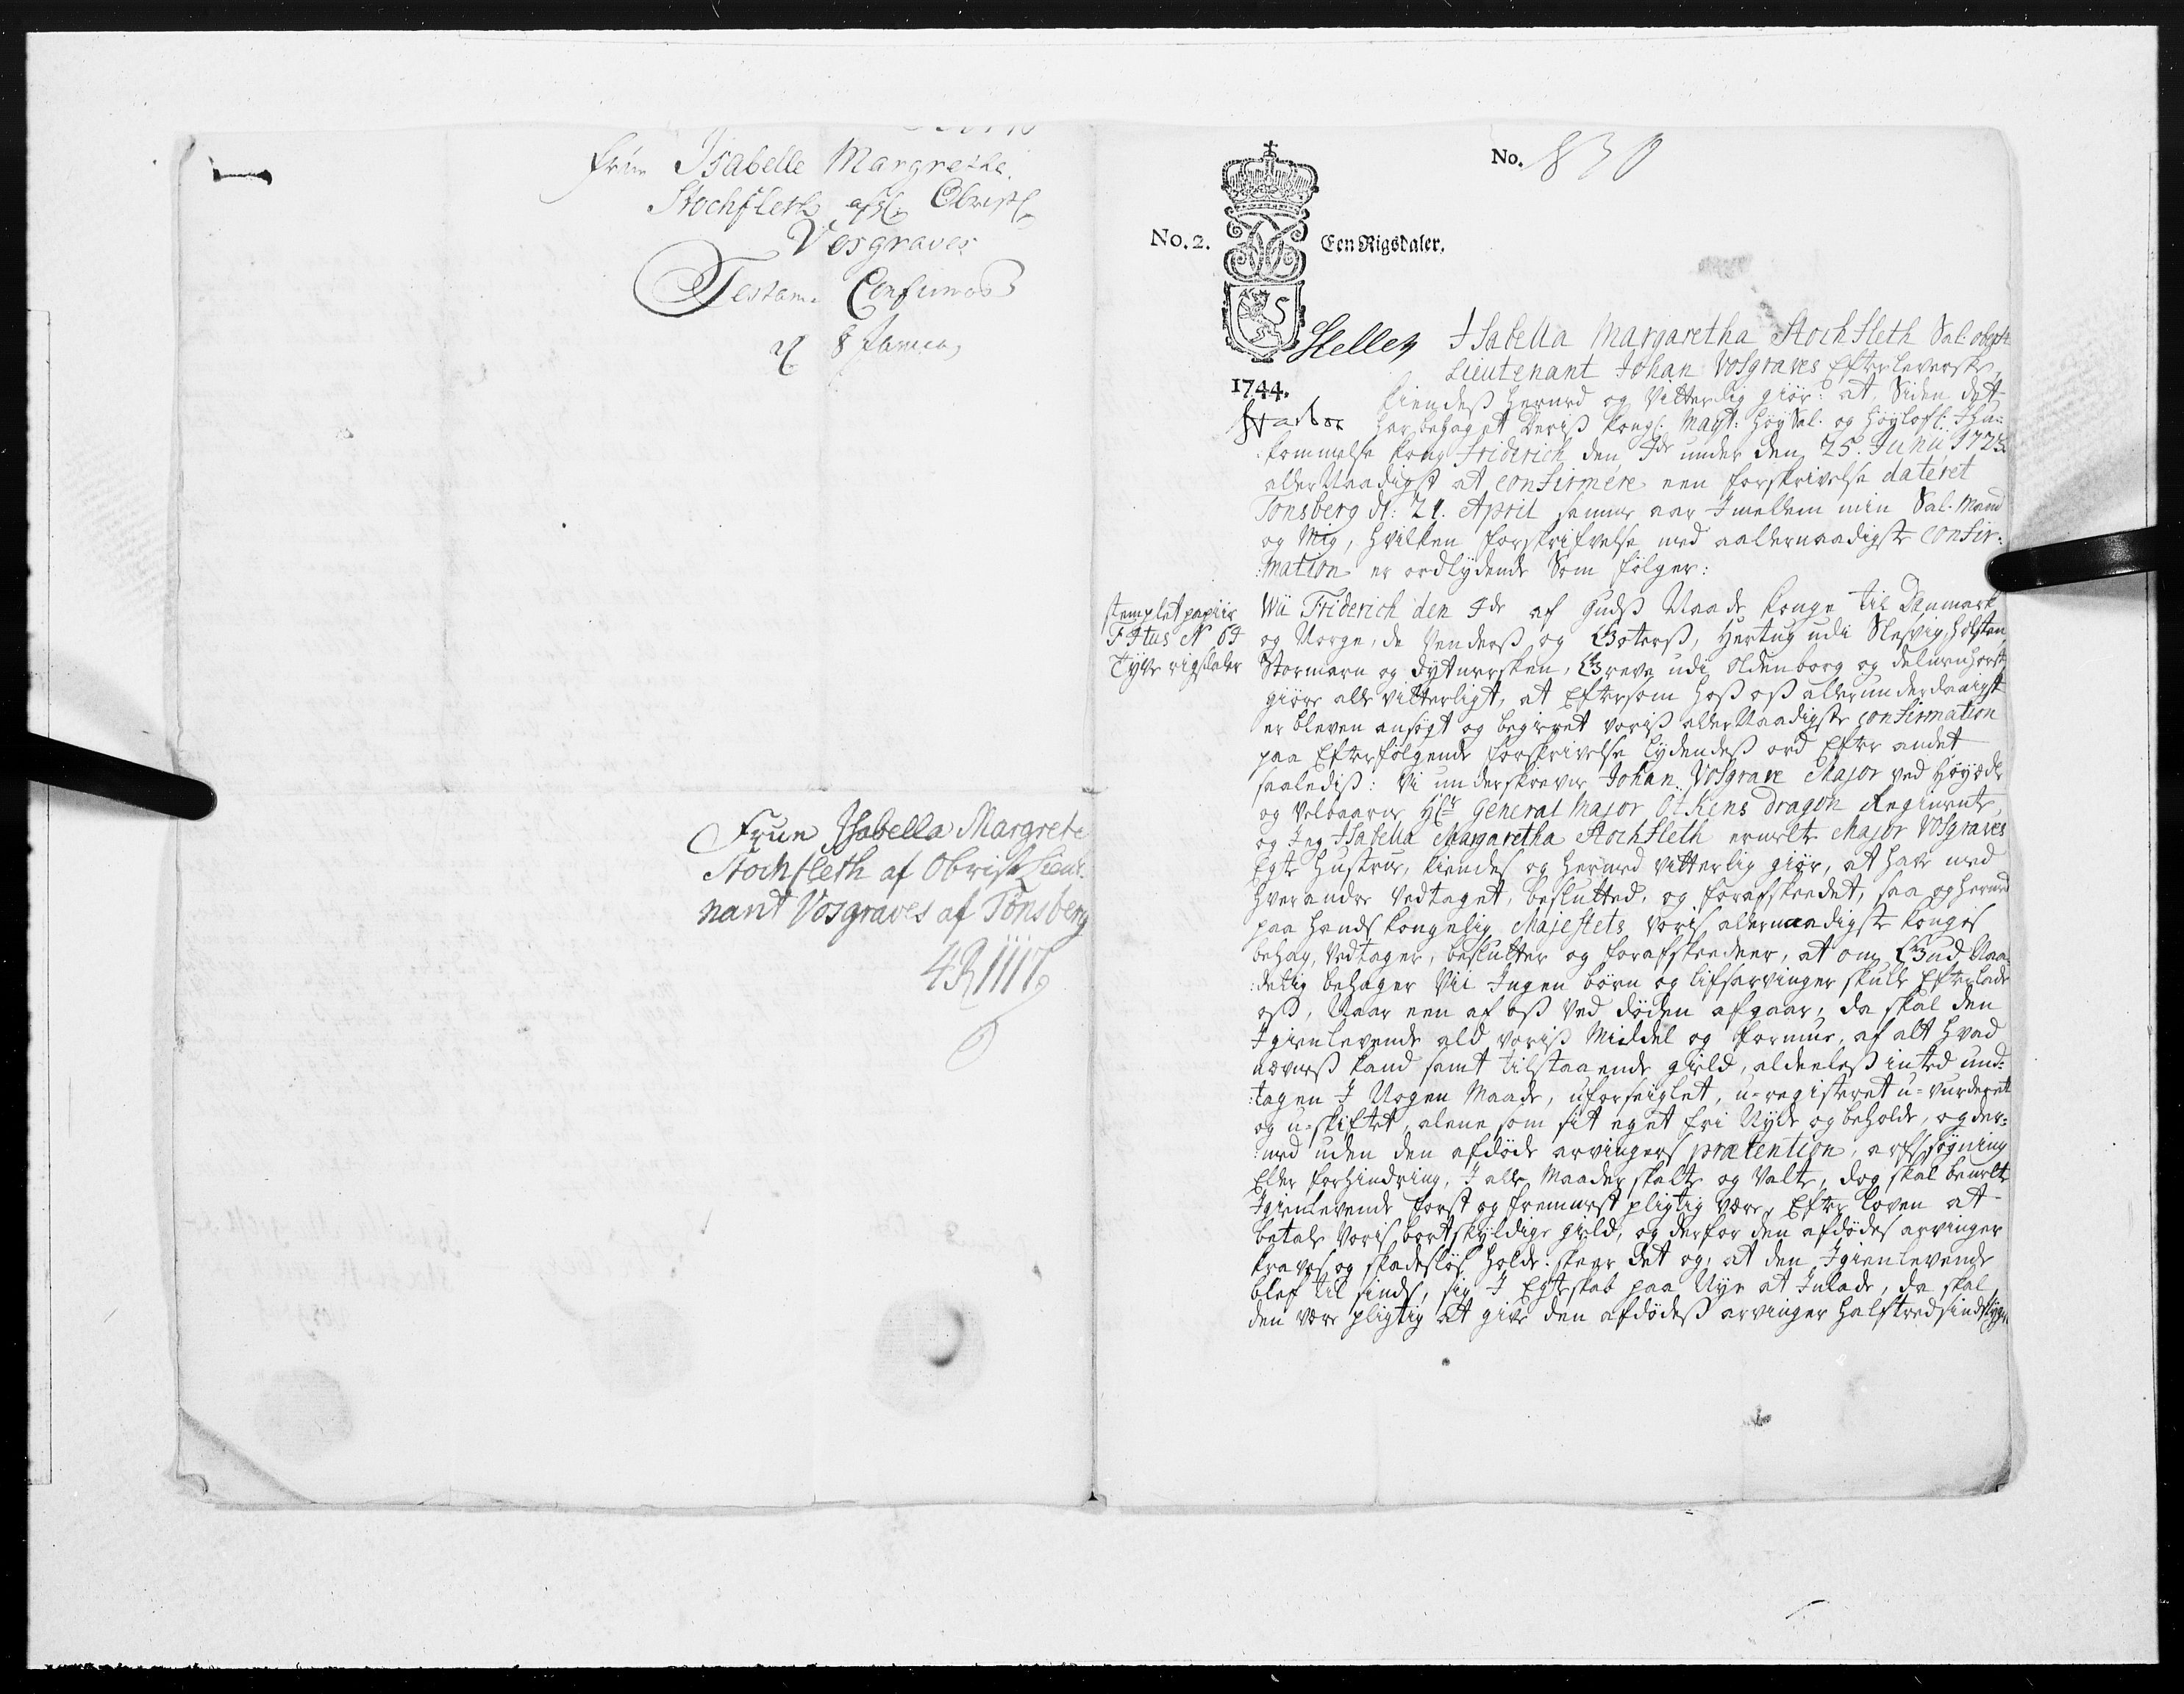 Frue Isabelle Margrethe
Stochfleth afgl. Obristl.
Vosgraves
Testam. Confirmas
d 8 Janua
Frue Isabella Margrete
Stochfleth af Obrist Lieut.
nant Vosgraves af Tönsberg
No. 830
No. 2.
Een Rigsdaler.
1744.
Isabella Margaretha Stochfleth Sal: obrist
Lieutenant Johan Vosgraves Efterleverske,
Kiendes hermed og Vitterlig giör: at, Siden det
har behaget Deris Kongl: Mayt: HöySal. og Höylofl: Ihu-
kommelse Kong Friderich den 4de under den 25. Junii 1723
allerNaadigst at confirmere een forskrivelse dateret
Tonsberg d: 21. April samme aar Imellem min Sal. Mand
og Mig, hvilken forskrifvelse med aallernaadigste confir:
:mation er ordlydende Som fölger:
stemplet papiir
F 4tus No 64
Tyve rigsdaler
Wii Friderich den 4de af Guds Naade Konge til Danmark
og Norge, de Venders og Goters, Hertug udi Slesvig, Holsten
Stormarn og Dytmersken, Greve udi Oldenborg og Delmenhorst
giöre alle vitterligt, at Eftersom hos os allerunderdanigst
er bleven ansögt og begieret voris allerNaadigste confirmation
paa Efterfölgende forskrivelse lydendes ord Efter andet
saaledis: Vi underskrevne Johan Vosgrave Major ved Höyædle
og Velbaarne Hr General Major Ötkens Dragon Regimente,
og Jeg Isabella Margaretha Stochfleth ermelte Major Vosgraves
Egte Hustrue, kiendes og hermed vitterlig giör, at have med
hverandre Vedtaget, besluttet, og forafskeedet, saa og hermed
paa Hands Kongelig Majestets Voris allernaadigste Konges
behag, Vedtager, beslutter og forafskeeder, at om Gud Naa:
:delig behager Vii Ingen börn og lifsarvinger skulle Efterlade
os, Naar een af os Ved döden afgaar, da skal den
Igienlevende ald voris Middel og formue, af alt hvad
nævnes kand samt tilstaaende gield, aldeeles inted und:
:tagen I Nogen Maade, uforseiglet, u-registeret u-vurderet
og u-skiftet, alene som sit eget fri Nyde og beholde, og der:
:med uden den afdöde arvingers prætention, arfssögning
Eller forhindring, I alle Maader skalte og Valte, dog skal bemelte
Igienlevende först og fremmest pligtig være, Efter loven at
betale Voris bortskyldige gield, og derfor den afdödes arvinger
kravs og skadeslös holde: skeer det og, at den Igienlevende
blef til sinds, sig I Egteskab paa Nye at Inlade, da skal
den være pligtig at give den afdödes arvinger halftredsindstyve